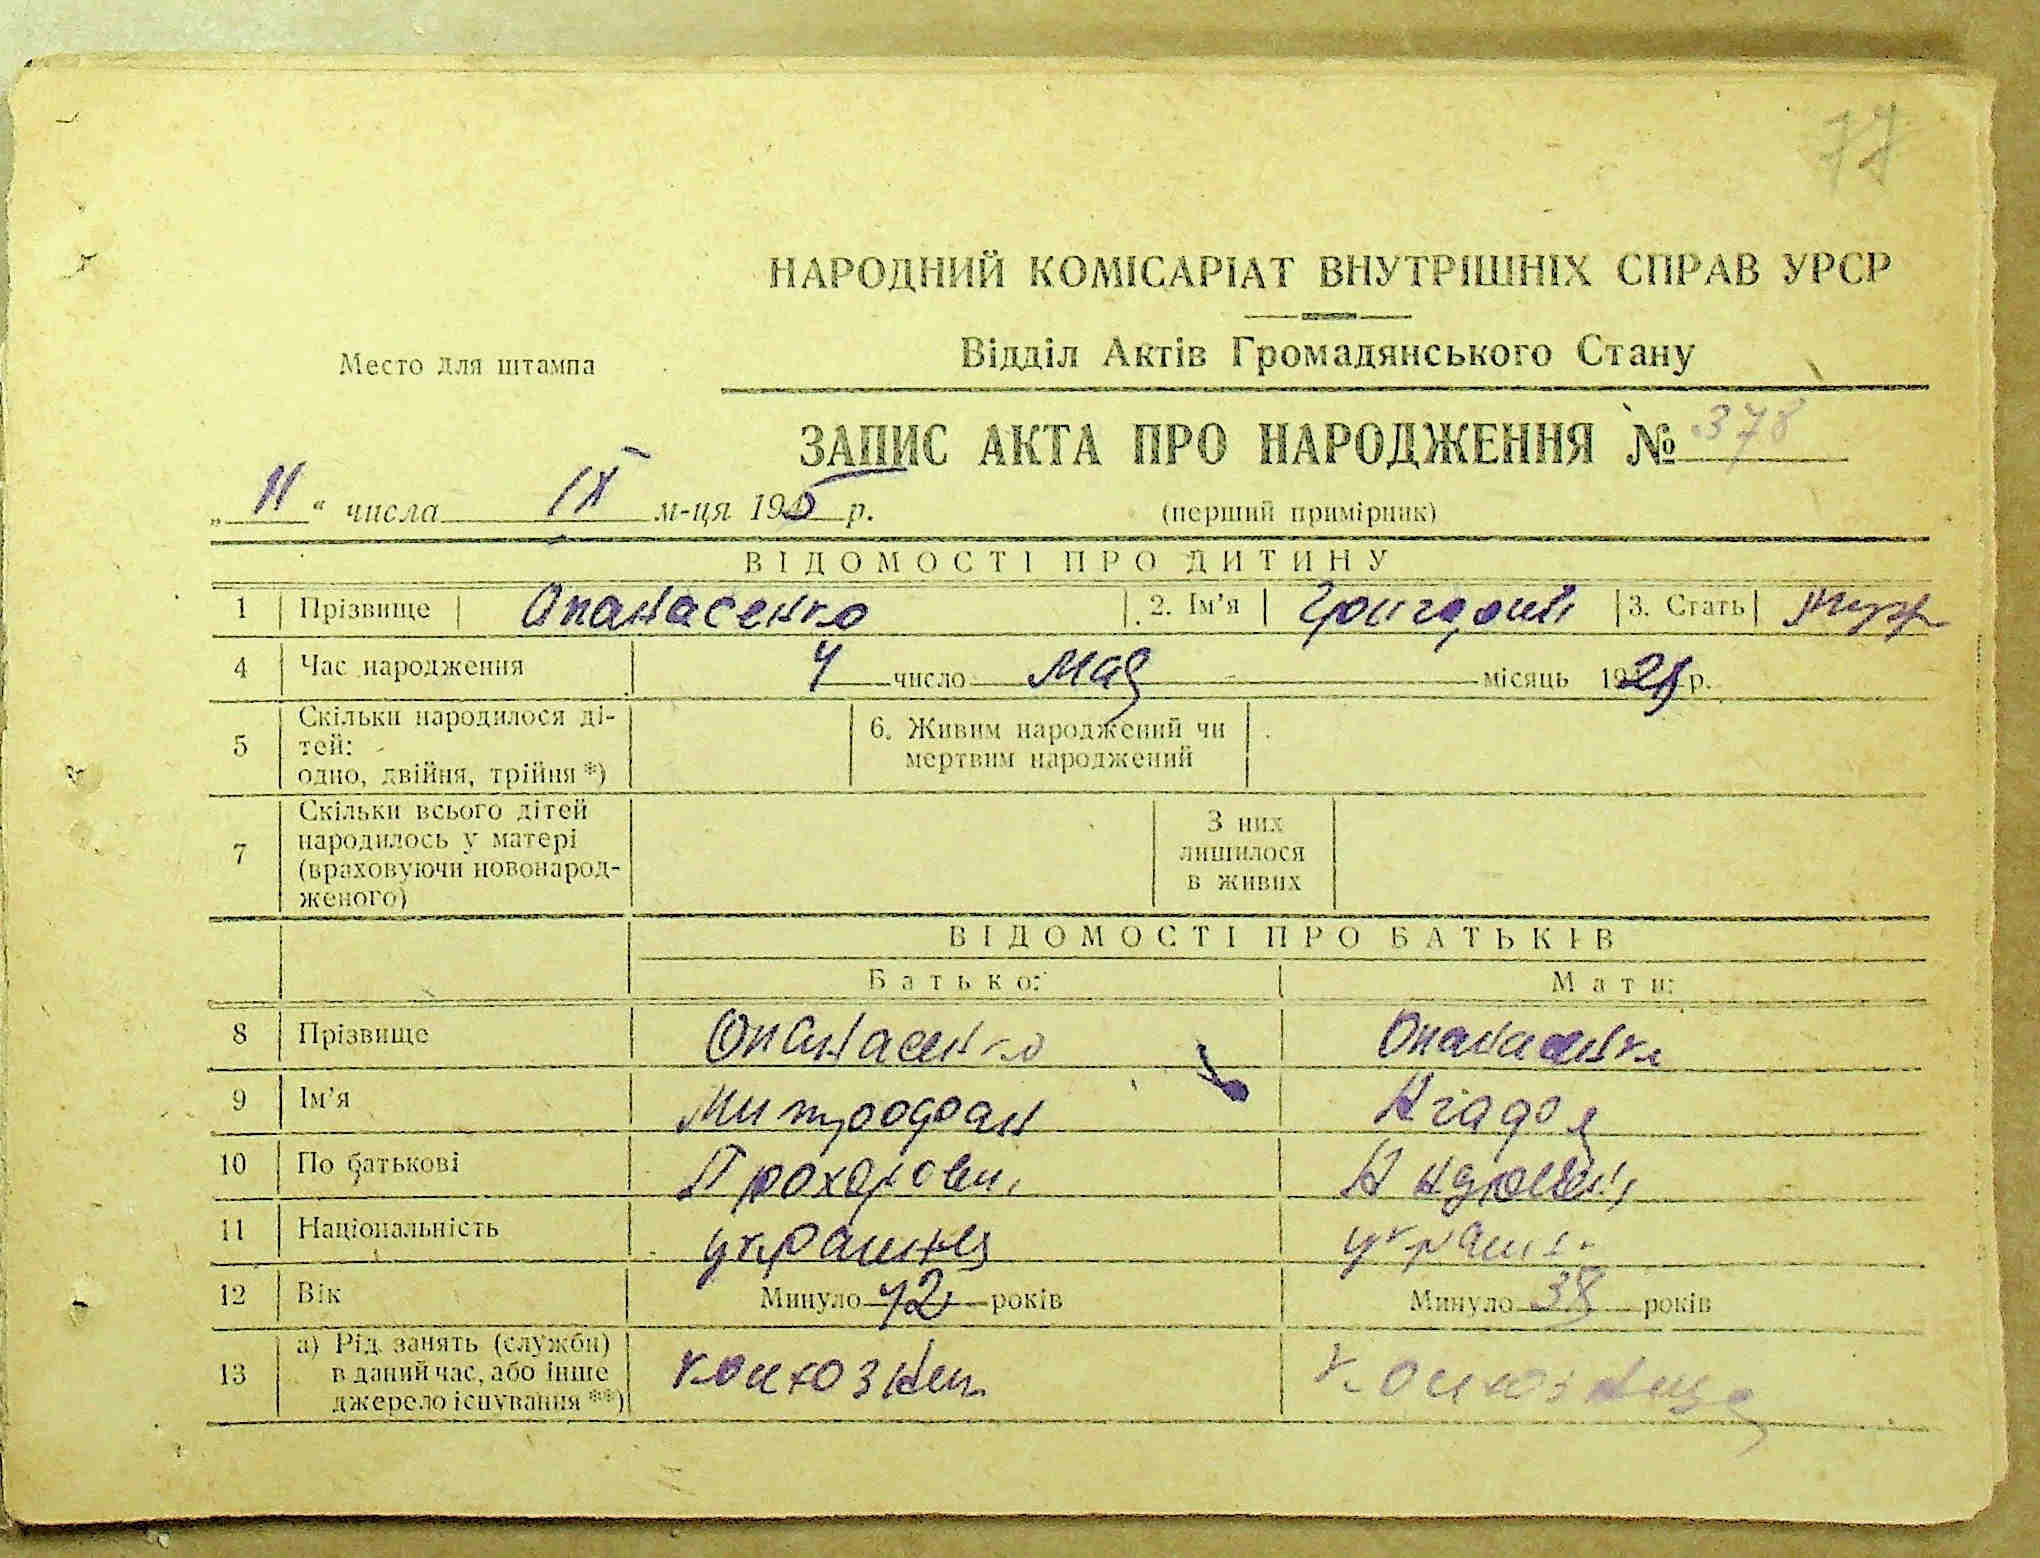 77
НАРОДНИЙ КОМІСАРІАТ ВНУТРІШНІХ СПРАВ УРСР
Место для штампа
Відділ Актів Громадянського Стану
ЗАПИС АКТА ПРО НАРОДЖЕННЯ № 378
„ 11 “ числа IX м-ця 1945 р.
(перший примірник)
ВІДОМОСТІ ПРО ДИТИНУ
1 Прізвище Опанасенко 2. Ім'я Григорий 3. Стать муж
4 Час народження 4 число мая місяць 19 р.
5 Скільки народилося ді-
тей:
одно, двійня, трійня *)
6. Живим народжений чи
мертвим народжений
7 Скільки всього дітей
народилось у матері
(враховуючи новонарод-
женого)
З них
лишилося
в живих
ВІДОМОСТІ ПРО БАТЬКІВ
Батько: Мати:
8 Прізвище Опанасенко Опанасенко
9 Ім'я Митрофан
10 По батькові Прохорович
11 Національність украинец украин.
12 Вік Минуло 42 років Минуло 38 років
13 а) Рід занять (служби)
в даний час, або інше
джерело існування **)
колхозник колхозница